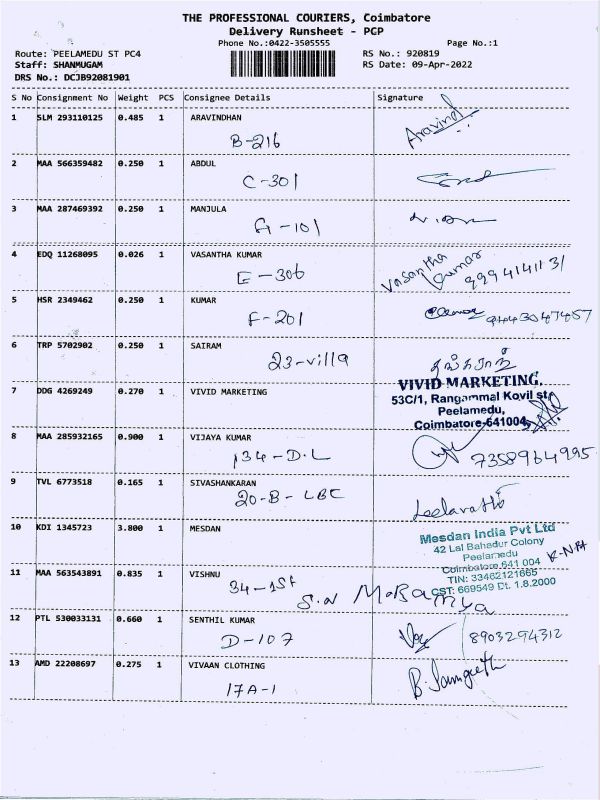 THE PROFESSIONAL COURIERS, Coimbatore
Delivery Runsheet - PCP
Phone No.:0422-3505555 Page No.:1
Route: PEELAMEDU ST PC4 RS No.: 920819
Staff: SHANMUGAM RS Date: 09-Apr-2022
DRS No.: DCJB92081901
S No Consignment No Weight PCS Consignee Details Signature
1 SLM 293110125 0.485 1 ARAVINDHAN
B-216 Aravind
2 MAA 566359482 0.250 1 ABDUL
C-301
3 MAA 287469392 0.250 1 MANJULA
G-101
4 EDQ 11268095 0.026 1 VASANTHA KUMAR
E-306 Vasantha Kumar 9994141131
5 HSR 2349462 0.250 1 KUMAR
F-201 9443047457
6 TRP 5702902 0.250 1 SAIRAM
23-villa
7 DDG 4269249 0.270 1 VIVID MARKETING
VIVID MARKETING,
53C/1, Rangammal Kovil st,
Peelamedu,
Coimbatore-641004
8 MAA 285932165 0.900 1 VIJAYA KUMAR
134-D.L 7358964995
9 TVL 6773518 0.165 1 SIVASHANKARAN
20-B-LBC Leelavathi
10 KDI 1345723 3.800 1 MESDAN
Mesdan India Pvt Ltd
42 Lal Bahadur Colony
Peelamedu
Coimbatore 641 004
TIN: 33462121665
CST: 669549 Dt. 1.8.2000
11 MAA 563543891 0.835 1 VISHNU
34-1St
12 PTL 530033131 0.660 1 SENTHIL KUMAR
D-107 8903294312
13 AMD 22208697 0.275 1 VIVAAN CLOTHING
17A-1